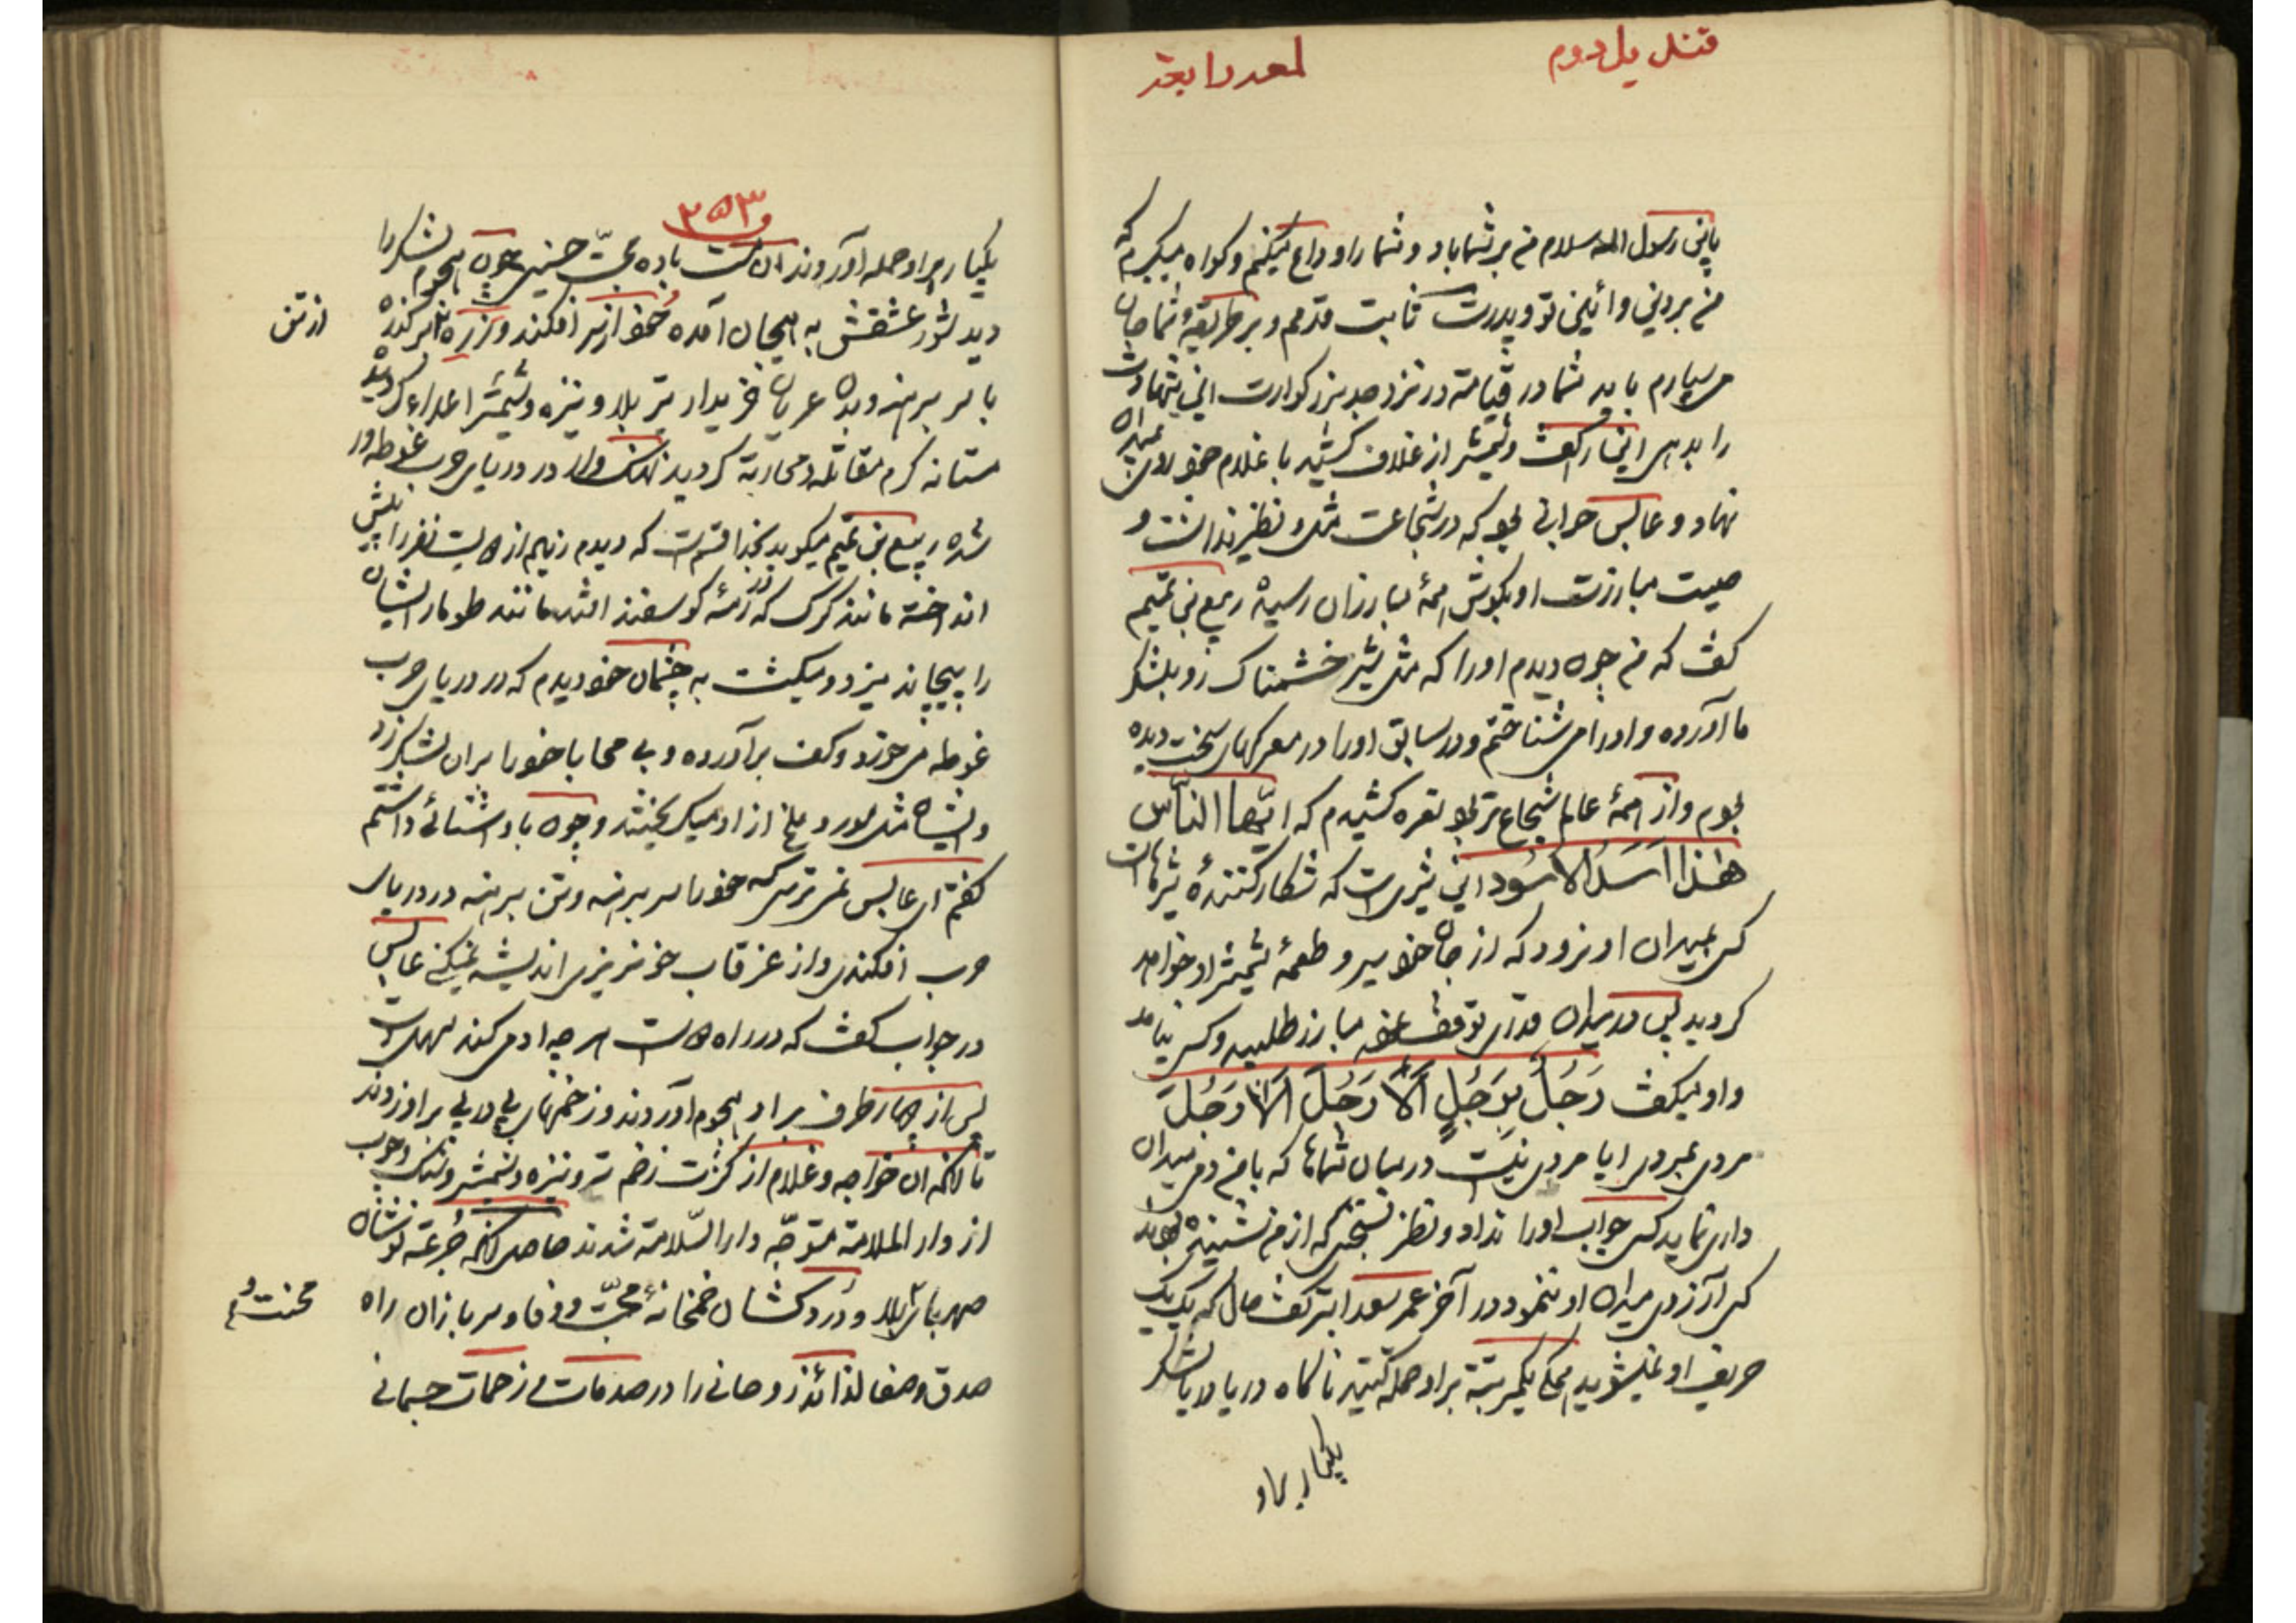 قندیل دوم
لمعه رابعة
یابن رسول الله سلام من بر شما باد و شما را وداع میکنم و گواه میگیرم که
من بر دین و آئین تو و پدرت ثابت قدمم و بر طریقهٔ شما جان
می سپارم باید شما در قیامة در نزد جد بزرگوارت این شهادت
را بدهی این را گفت و شمشیر از غلاف کشید با غلام خود روی بمیدان
نهاد و عابس جوانی بود که در شجاعت مثل و نظیر نداشت و
صیت مبارزت او بگوش همهٔ مبارزان رسیده ربیع بن تمیم
گفت که من چون دیدم او را که مثل شیر خشمناک رو بلشکر
ما آورده و او را می شناختم و در سابق او را در معرکهای سخت دیده
بودم و از همهٔ عالم شجاع تر بود نعره کشیدم که ایّها النّاس
هٰذا اَسَدُ الاُسُود این شیریست که شکار کنندهٔ شیرهاست
کسی بمیدان او نرود که از جان خود سیر و طعمهٔ شمشیر او خواهد
گردید پس در میدان قدری توقف نموده مبارز طلبید و کسی نیامد
و او میگفت رَجُلٌ بِرَجُلٍ اَلا رَجُلَ اَلا رَجُلَ
مردی بمردی ایا مردی نیست در میان شماها که با من دمی میدان
داری نماید کسی جواب او را نداد و نظر بسخنی که از من شنیده بودند
کسی آرزوی میدان او ننمود در آخر عمر سعد ابتر گفت حال که یک یک
حریف او نمیشوید همگی یکمرتبة بر او حمله کنید ناگاه دریا دریا لشکر
یکبار بر او
۲۵۳
یکبار بر او حمله آوردند آن مست بادهٔ محبّت حسینی چون هجوم لشکر را
دید شور عشقش به هیجان آمده خُود از سر افکند و زره از بر کنده
از تن
با سر برهنه و بدن عریان خریدار تیر بلا و نیزه و شمشیر اعدا گردید
مستانه گرم مقاتله و محاربة گردید نهنک وار در دریای حرب غوطه ور
شده ربیع بن تمیم میگوید بخدا قسم است که دیدم زیاده از دویست نفر را پیش
انداخته مانند گرگ که در رمهٔ گوسفند افتد مانند طومار ایشان
را پیچاند میزد و میکشت به چشمان خود دیدم که در دریای حرب
غوطه می خورد و کف بر آورده و بی محابا خود را بر آن لشکر زد
و ایشان مثل مور و ملخ از او میگریختند و چون با او آشنائی داشتم
گفتم ای عابس نمی ترسی که خود را سر برهنه و تن برهنه در دریای
حرب افکندی و از غرقاب خونریزی اندیشه نمیکنی عابس
در جواب گفت که در راه دوست هر چه آدمی کند سهل است
پس از چهار طرف بر او هجوم آوردند و زخمهای پی در پی بر او زدند
تا آنکه آن خواجه و غلام از کثرت زخم تیر و نیزه و شمشیر و سنک و چوب
از دار الملامة متوجّه دار السّلامة شدند حاصل آنکه جُرعه نوشان
صهبای بلا و دُرد کشان خمخانهٔ محبّت و وفا و سر بازان راه
محنت و
صدق و صفا لذائذ روحانی را در صدمات و زحمات جسمانی